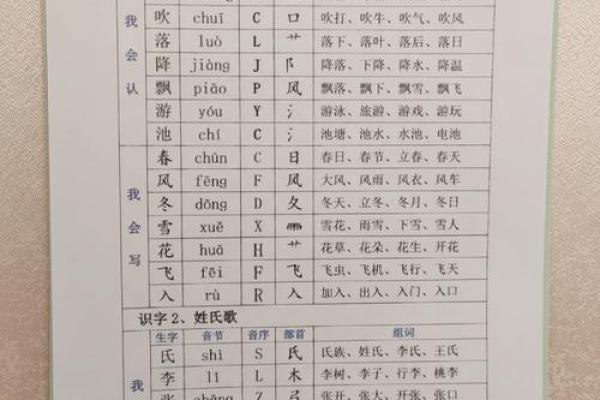 吹 chuī C 口 吹打、吹牛、吹气、吹风
落 luò L 艹 落下、落叶、落后、落日
降 jiàng J 阝 降落、下降、降水、降温
飘 piāo P 风 飘落、飘下、飘雪、飘飞
游 yóu Y 氵 游泳、旅游、游戏、游玩
池 chí C 氵 池塘、池水、水池、电池
我会认
春 chūn C 日 春日、春节、立春、春天
风 fēng F 风 大风、风雨、风衣、风车
冬 dōng D 夂 冬天、立冬、冬月、冬日
雪 xuě X ⻗ 雪花、雨雪、下雪、雪人
花 huā H 艹 花草、花朵、花生、开花
飞 fēi F 飞 飞虫、飞机、飞行、飞天
入 rù R 入 加入、出入、入门、入口
我会写
识字2、姓氏歌
生字 音节 音序 部首 组词
氏 shì S 氏 氏族、姓氏、李氏、王氏
李 lǐ L 木 李树、李子、行李、桃李
张 zhāng Z 弓 张开、大张、开张、张口
我